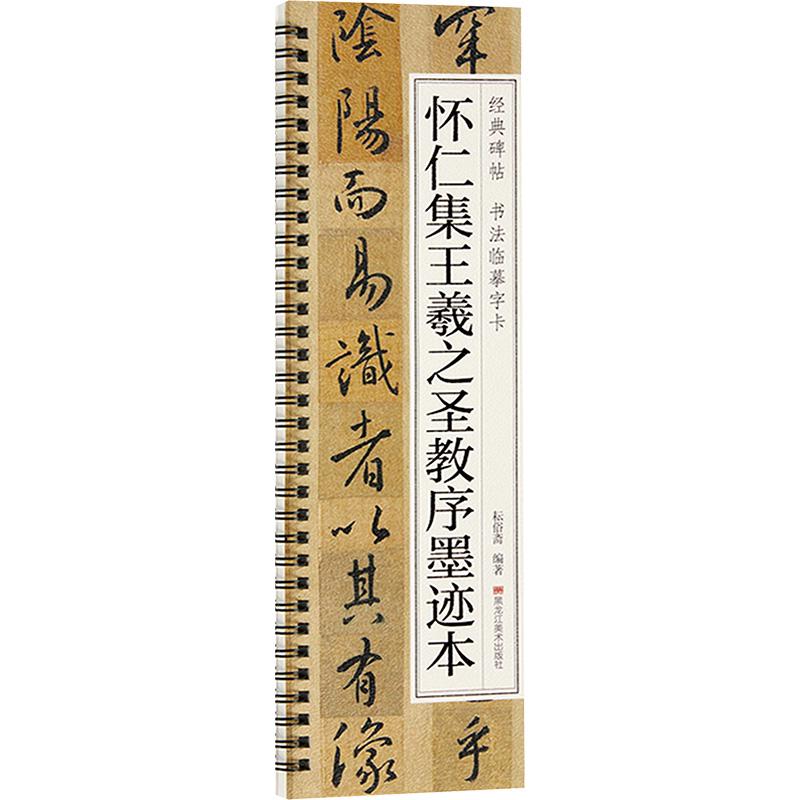 罕
乎
陰陽而易識者以其有像
经典碑帖 书法临摹字卡
怀仁集王羲之圣教序墨迹本
耘俗斋 编著
黑龙江美术出版社